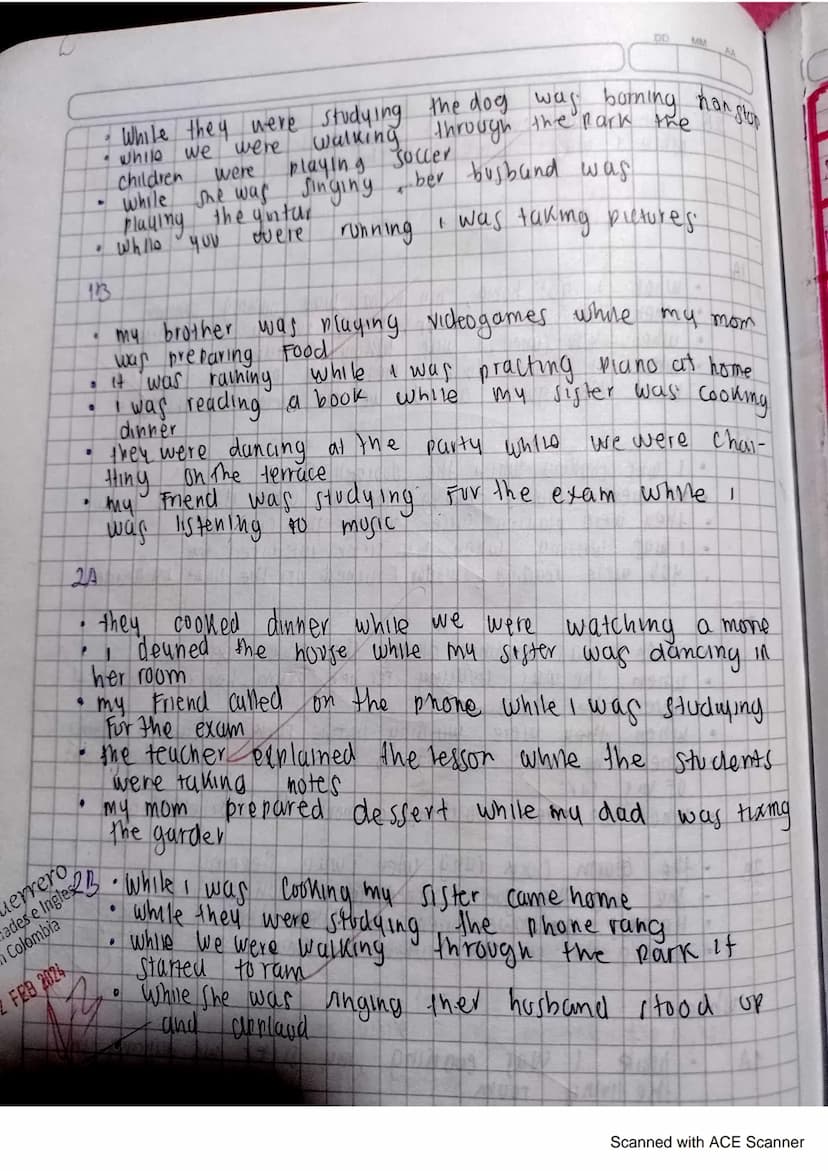 DD MM AA
• While they were studying the dog was borning nonstop
• while we were walking through the park the
children were playing soccer
• while she was singing , her busband was
playing the guitar
• while you were running i was taking pictures
1B
• my brother was playing videogames while my mom
was preparing Food
• it was raining while i was practing piano at home
• i was reading a book while my sister was cooking
dinner
• they were dancing at the party while we were cha-
tting on the terrace
• my Friend was studying For the exam while i
was listening to music
2A
• they cooked dinner while we were watching a movie
• i cleaned the house while my sister was dancing in
her room
• my Friend called on the phone while i was studying
For the exam
• the teacher explained the lesson while the students
were taking notes
• my mom prepared dessert while my dad was fixing
the garden
2B • While i was cooking my sister came home
• while they were studying the phone rang
• while we were walking through the park it
started to rain
• while she was singing ther husband stood up
and applaud
uerrero
ades e Ingles
n Colombia
2 FEB 2024
Scanned with ACE Scanner